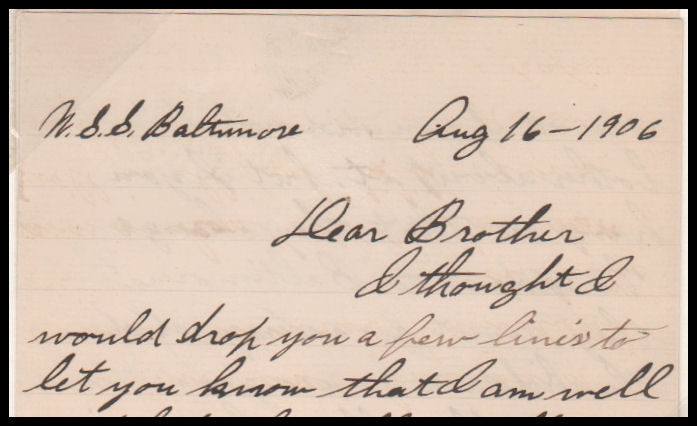 U.S.S. Baltimore Aug 16-1906
Dear Brother
I thought I
would drop you a few lines to
let you know that I am well